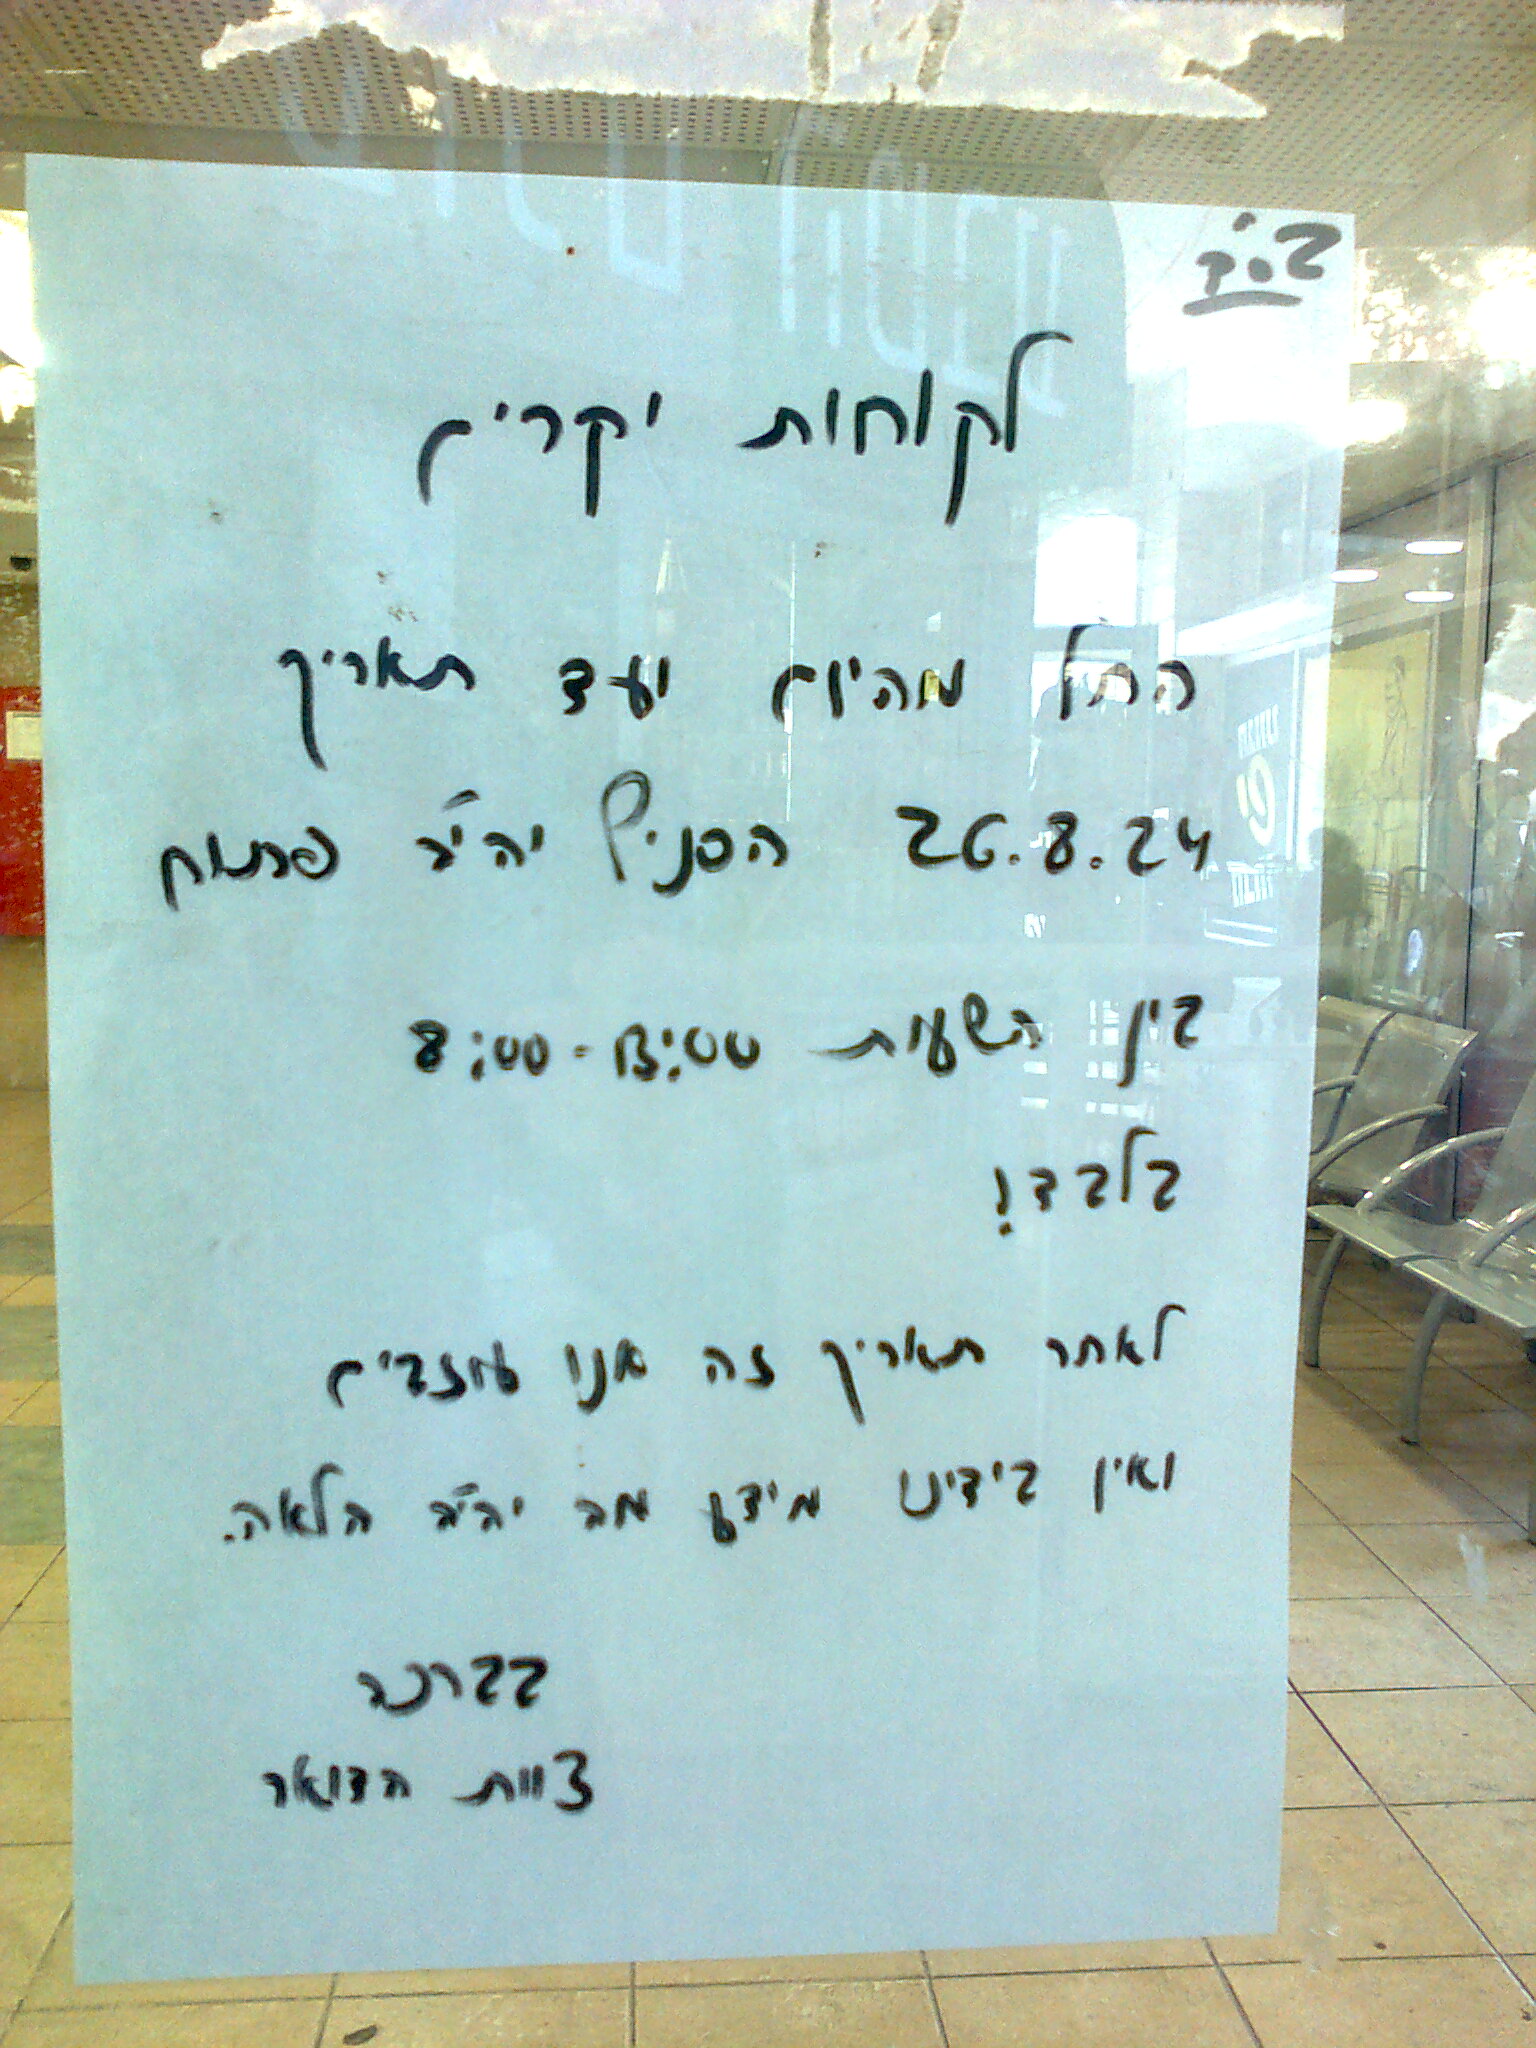 ב"ד
לקוחות יקרים
החל מהיום ועד תאריך
26.8.24 הסניף יהיה פתוח
בין השעות 8:00-13:00
בלבד!
לאחר תאריך זה אנו עוזבים
ואין בידינו מידע מה יהיה הלאה.
בברכה
צוות הדואר